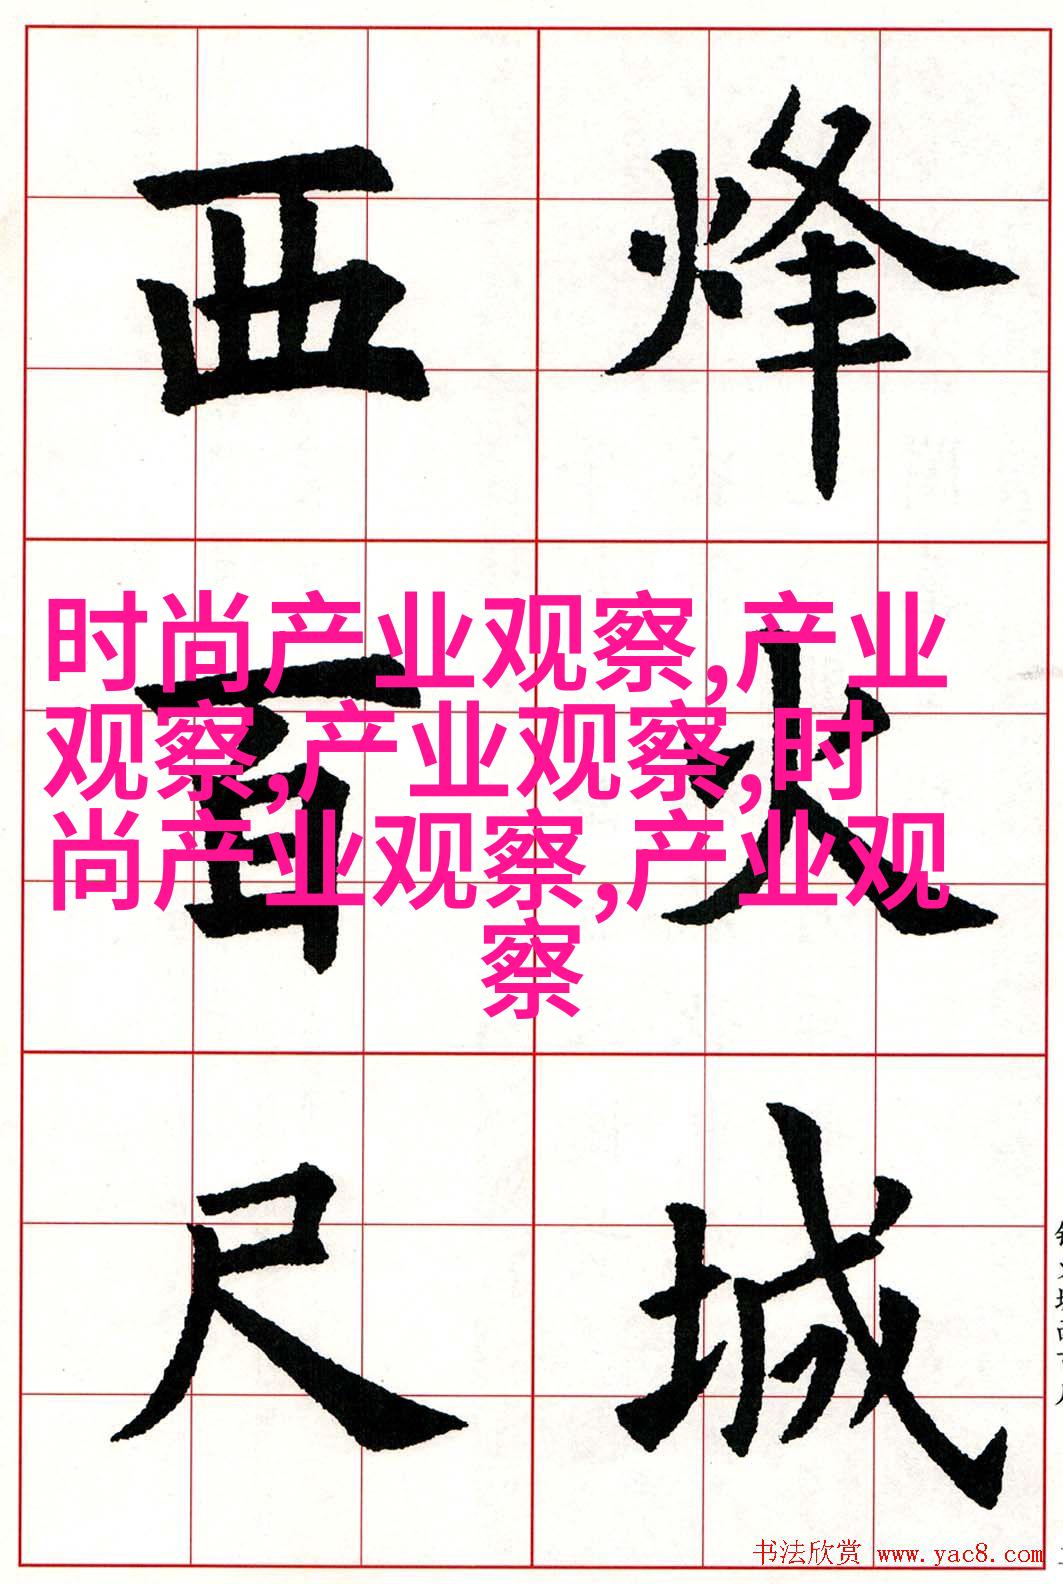 烽火城
西百尺
时尚产业观察,产业
观察,产业观察,时
尚产业观察,产业观
察
书法欣赏 www.yac8.com